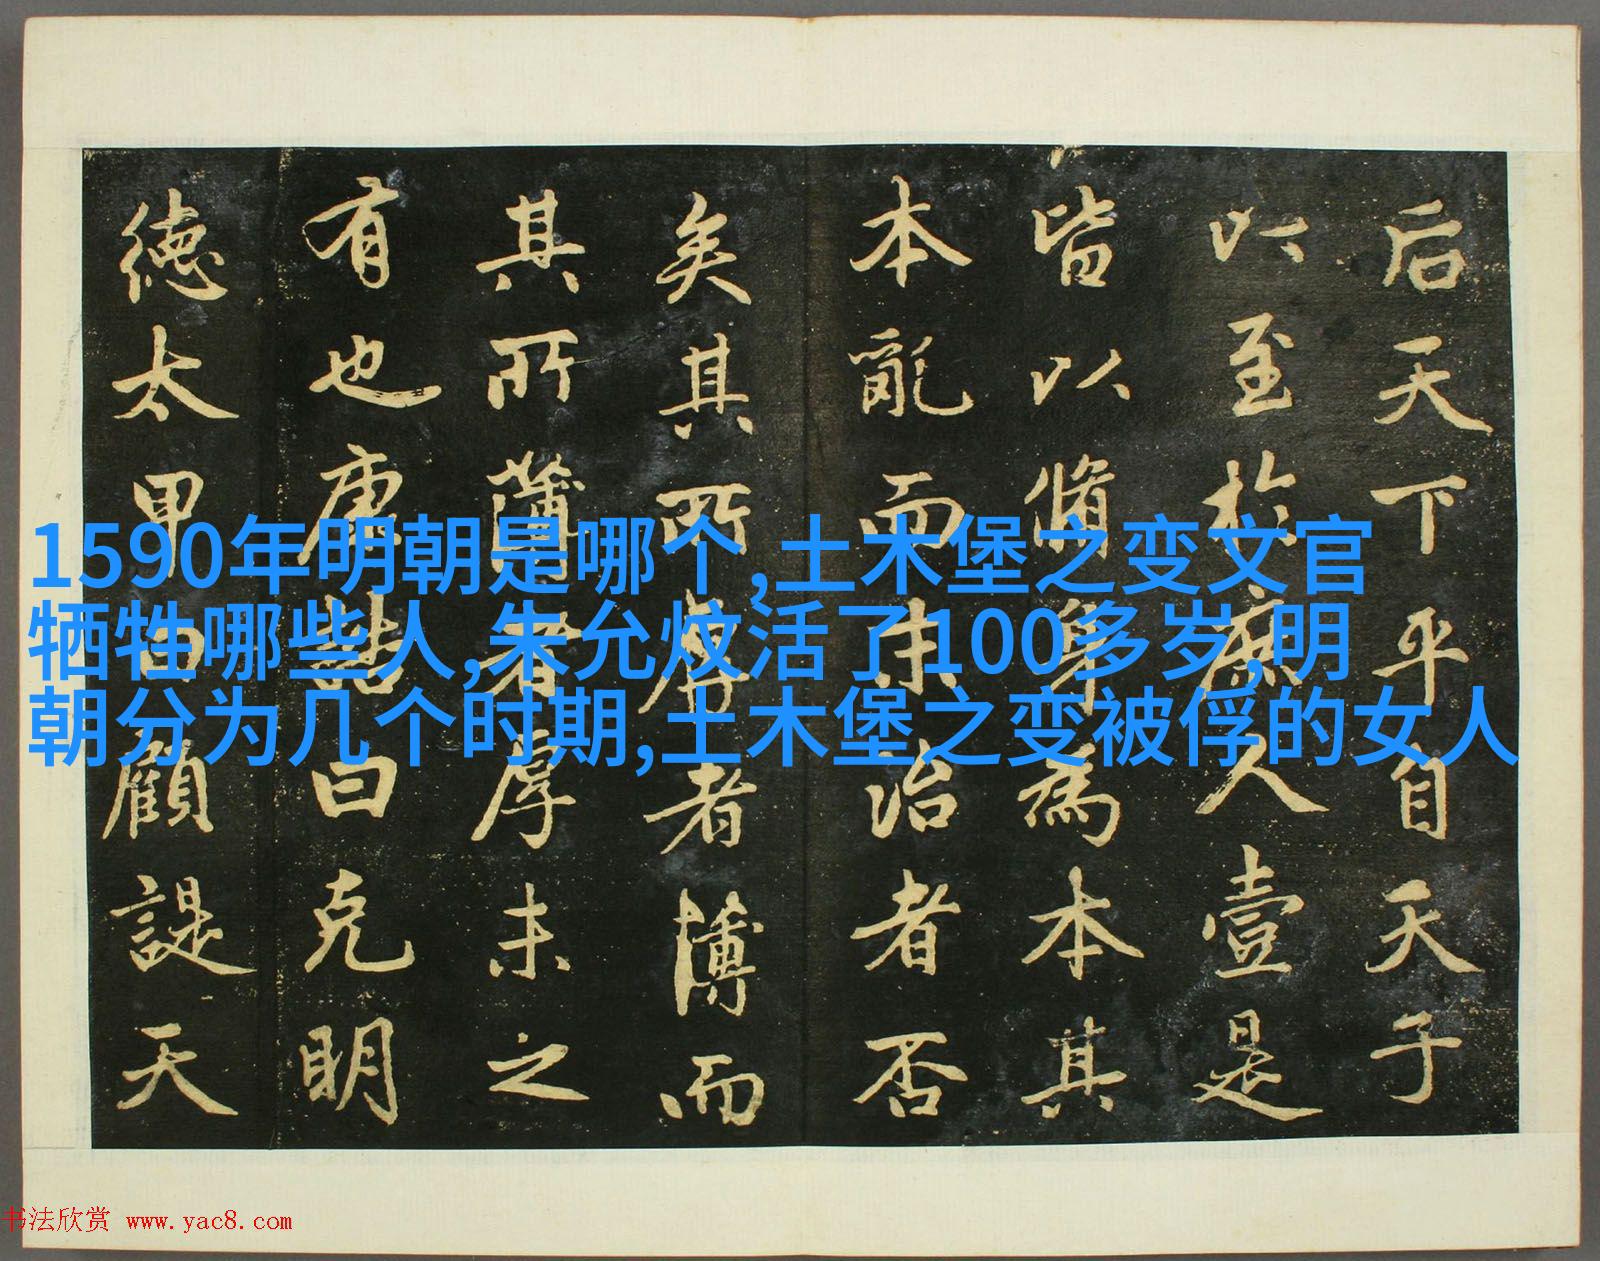 后天下平自天子
以至於庶人壹是
皆以脩身為本其
本亂而末治者否
矣其所厚者薄而
其所薄者厚未之
有也康誥曰克明
德太甲曰顧諟天
1590年明朝是哪个,土木堡之变文官
牺牲哪些人,朱允炆活了100多岁,明
朝分为几个时期,土木堡之变被俘的女人
书法欣赏 www.yac8.com